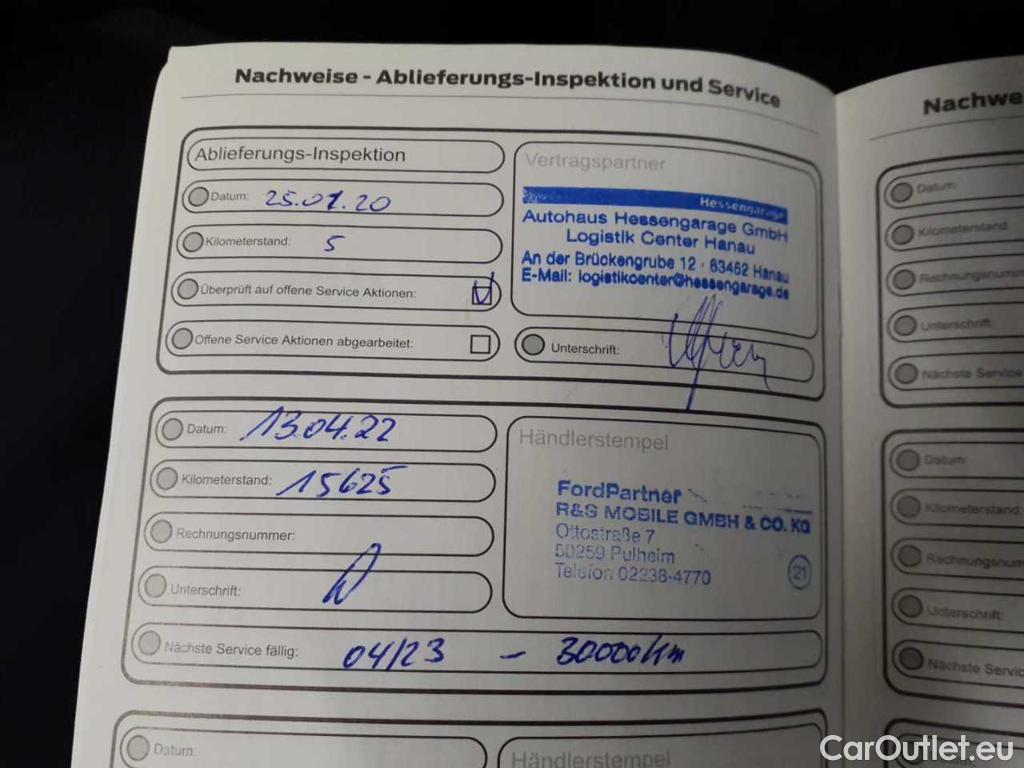 Nachweise - Ablieferungs-Inspektion und Service
Ablieferungs-Inspektion
Datum: 25.01.20
Kilometerstand: 5
Überprüft auf offene Service Aktionen:
Offene Service Aktionen abgearbeitet:
Vertragspartner
Hessengarage
Autohaus Hessengarage GmbH
Logistik Center Hanau
An der Brückengrube 12 · 63452 Hanau
E-Mail: logistikcenter@hessengarage.de
Unterschrift:
Datum: 13.04.22
Kilometerstand: 15625
Rechnungsnummer:
Unterschrift:
Händlerstempel
FordPartner
R&S MOBILE GMBH & CO. KG
Ottostraße 7
50259 Pulheim
Telefon 02238-4770
21
Nächste Service fällig: 04/23 - 30000km
Datum:
Händlerstempel
Nachwe
Datum:
Kilometerstand
Rechnungsnumm
Unterschrift:
Nächste Service
Datum:
Kilometerstand
Rechnungsnum
Unterschrift:
Nächste Servic
Datum:
CarOutlet.eu